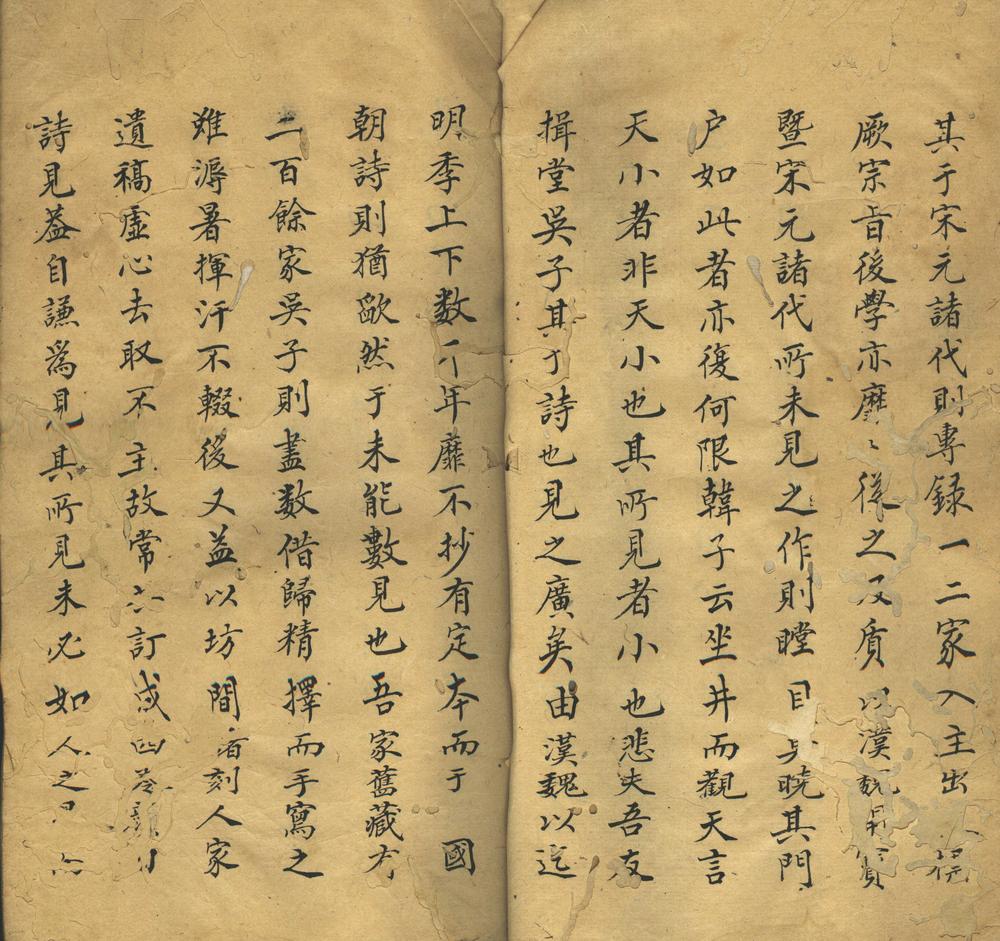 其于宋元諸代則專録一二家入主出
厥宗旨後學亦靡〻従之及質以漢魏
暨宋元諸代所未見之作則瞠目与曉其門
户如此者亦復何限韓子云坐井而觀天言
天小者非天小也其所見者小也悲夫吾友
揖堂吳子其于詩也見之廣矣由漢魏以迄
明季上下数千年靡不抄有定本而于 國
朝詩則猶歉然于未能數見也吾家舊藏
二百餘家吳子則盡数借歸精擇而手寫之
雖溽暑揮汗不輟後又益以坊間省刻人家
遺稿虚心去取不主故常六訂成四卷顏
詩見葢自謙為見其所見未必如人之